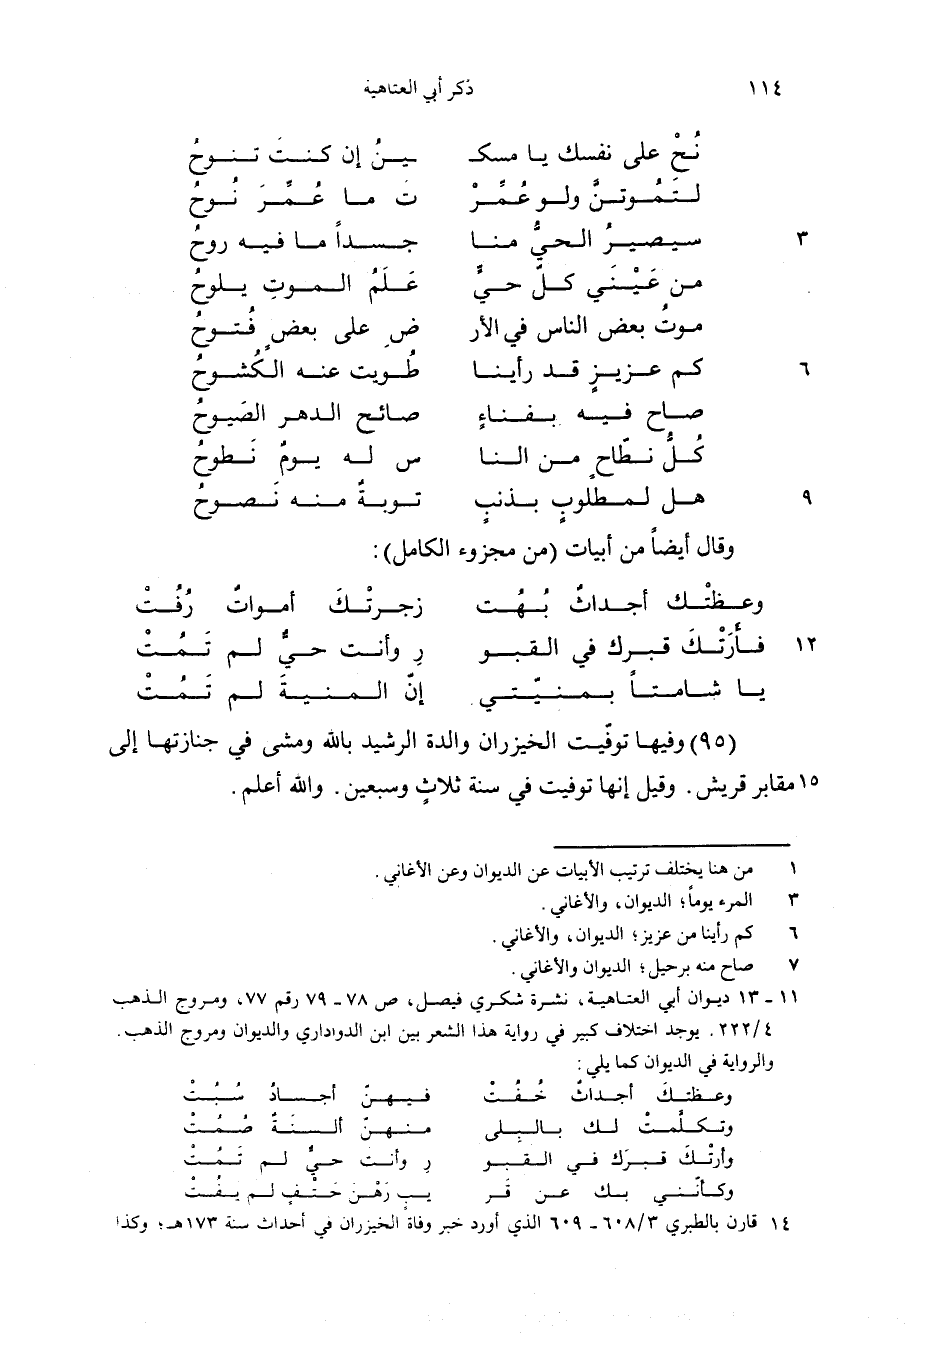 ١١٤ ذكر أبي العتاهية
نُحْ على نفسك يا مسكـ ـينُ إن كنتَ تنوحُ
لتَمُوتَنَّ ولو عُمِّرْ تَ ما عُمِّرَ نُوحُ
٣ سيصيرُ الحيُّ منا جسداً ما فيه روحُ
من عَيْنَي كلّ حيٍّ عَلَمُ الموتِ يلوحُ
موتُ بعض الناس في الأر ضِ على بعضٍ فُتُوحُ
٦ كم عزيزٍ قد رأينا طُويت عنه الكُشُوحُ
صاح فيه بفناءٍ صائح الدهر الصَّيوحُ
كُلُّ نطّاحٍ من النا س له يومٌ نَطوحُ
٩ هل لمطلوبٍ بذنبٍ توبةٌ منه نَصوحُ
وقال أيضاً من أبيات (من مجزوء الكامل):
وعظتْك أجداثٌ بُهُت زجرتْكَ أمواتٌ رُفُتْ
١٢ فأَرَتْكَ قبرك في القبو رِ وأنت حيٌّ لم تَمُتْ
يا شامتاً بمنيّتي إنّ المنيةَ لم تَمُتْ
(٩٥) وفيها توفّيت الخيزران والدة الرشيد بالله ومشى في جنازتها إلى
١٥ مقابر قريش. وقيل إنها توفيت في سنة ثلاثٍ وسبعين. والله أعلم.
١ من هنا يختلف ترتيب الأبيات عن الديوان وعن الأغاني.
٣ المرء يوماً؛ الديوان، والأغاني.
٦ كم رأينا من عزيز؛ الديوان، والأغاني.
٧ صاح منه برحيل؛ الديوان والأغاني.
١١ - ١٣ ديوان أبي العتاهية، نشرة شكري فيصل، ص ٧٨ - ٧٩ رقم ٧٧، ومروج الذهب
٤/٢٢٢. يوجد اختلاف كبير في رواية هذا الشعر بين ابن الدواداري والديوان ومروج الذهب.
والرواية في الديوان كما يلي:
وعظتكَ أجداثٌ خُفُتْ فيهنّ أجسادٌ سُبُتْ
وتكلّمتْ لك بالبلى منهنّ ألسنةٌ صُمُتْ
وأرتْكَ قبرك في القبو رِ وأنت حيٌّ لم تَمُتْ
وكأنني بك عن قر يبٍ رَهْنَ حَتْفٍ لم يفُتْ
١٤ قارن بالطبري ٣/ ٦٠٨ - ٦٠٩ الذي أورد خبر وفاة الخيزران في أحداث سنة ١٧٣هـ؛ وكذا